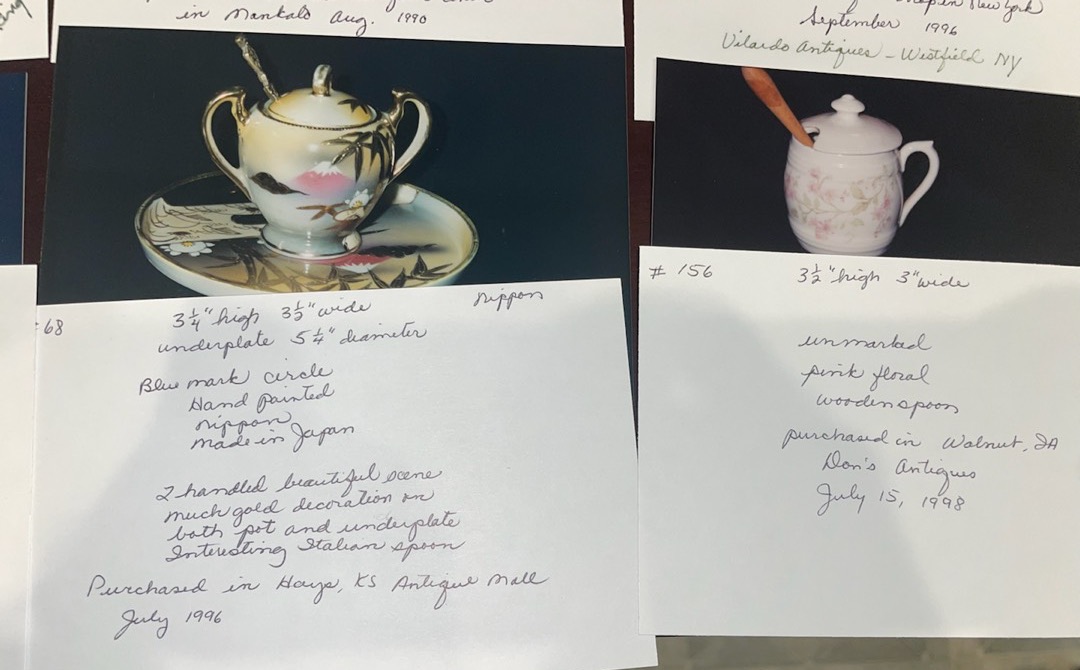 in Mankato Aug. 1990
in New York
September 1996
Vilardo Antiques – Westfield NY
68
3 1/4" high 3 1/2" wide
Nippon
underplate 5 1/4" diameter
Blue mark circle
Hand painted
Nippon
made in Japan
2 handled beautiful scene
much gold decoration on
both pot and underplate
Interesting Italian spoon
Purchased in Hays, KS Antique Mall
July 1996
# 156
3 1/2" high 3" wide
unmarked
pink floral
wooden spoon
purchased in Walnut, IA
Don's Antiques
July 15, 1998